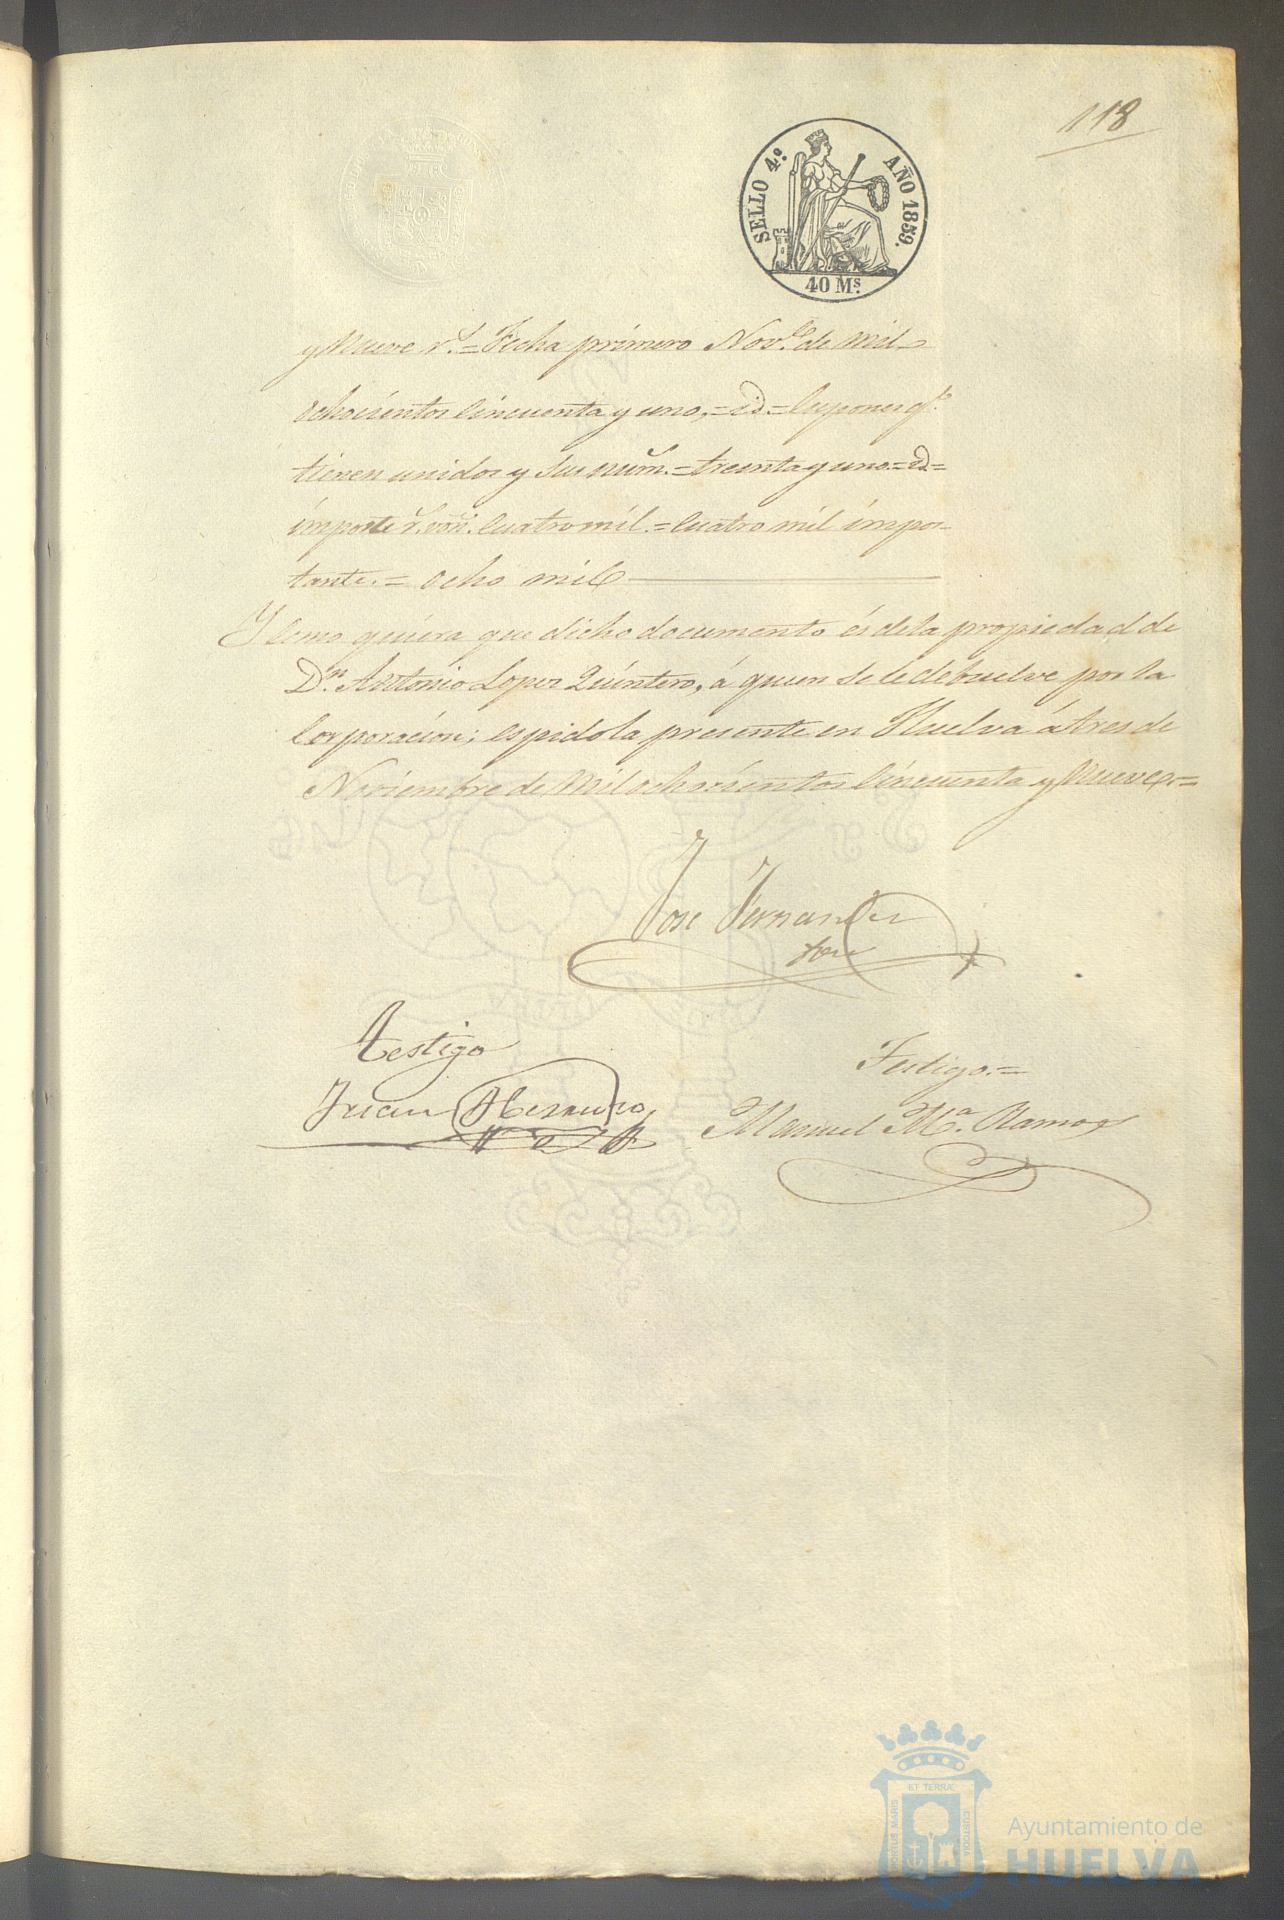 118
SELLO 4.º AÑO 1859.
40 Ms.
y Nueve r.s = Fecha primero Nov.e de mil
ochocientos Cincuenta y uno, = id. = Cupones q.e
tienen unidos y sus núm. = treinta y uno = id =
importe r.s von. Cuatro mil. = Cuatro mil impor-
tante. = Ocho mil
Y como quiera que dicho documento és de la propiedad de
D.n Antonio Lopez Quintero, á quien se le debuelve por la
Corporacion; espido la presente en Huelva á tres de
Noviembre de Mil ochocientos Cincuenta y Nueve =
Jose Fernandez
Testigo
Testigo. =
Juan
Manuel M.a Ramos
PORTUS MARIS ET TERRÆ CUSTODIA
Ayuntamiento de
HUELVA